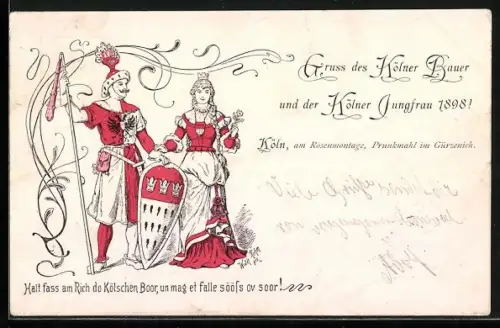 Gruss des Kölner Bauer
und der Kölner Jungfrau 1898!
Köln, am Rosenmontage, Prunkmahl im Gürzenich.
Viele Grüße
von
Halt fass am Rich do Kölschen Boor, un mag et falle söös ov soor!